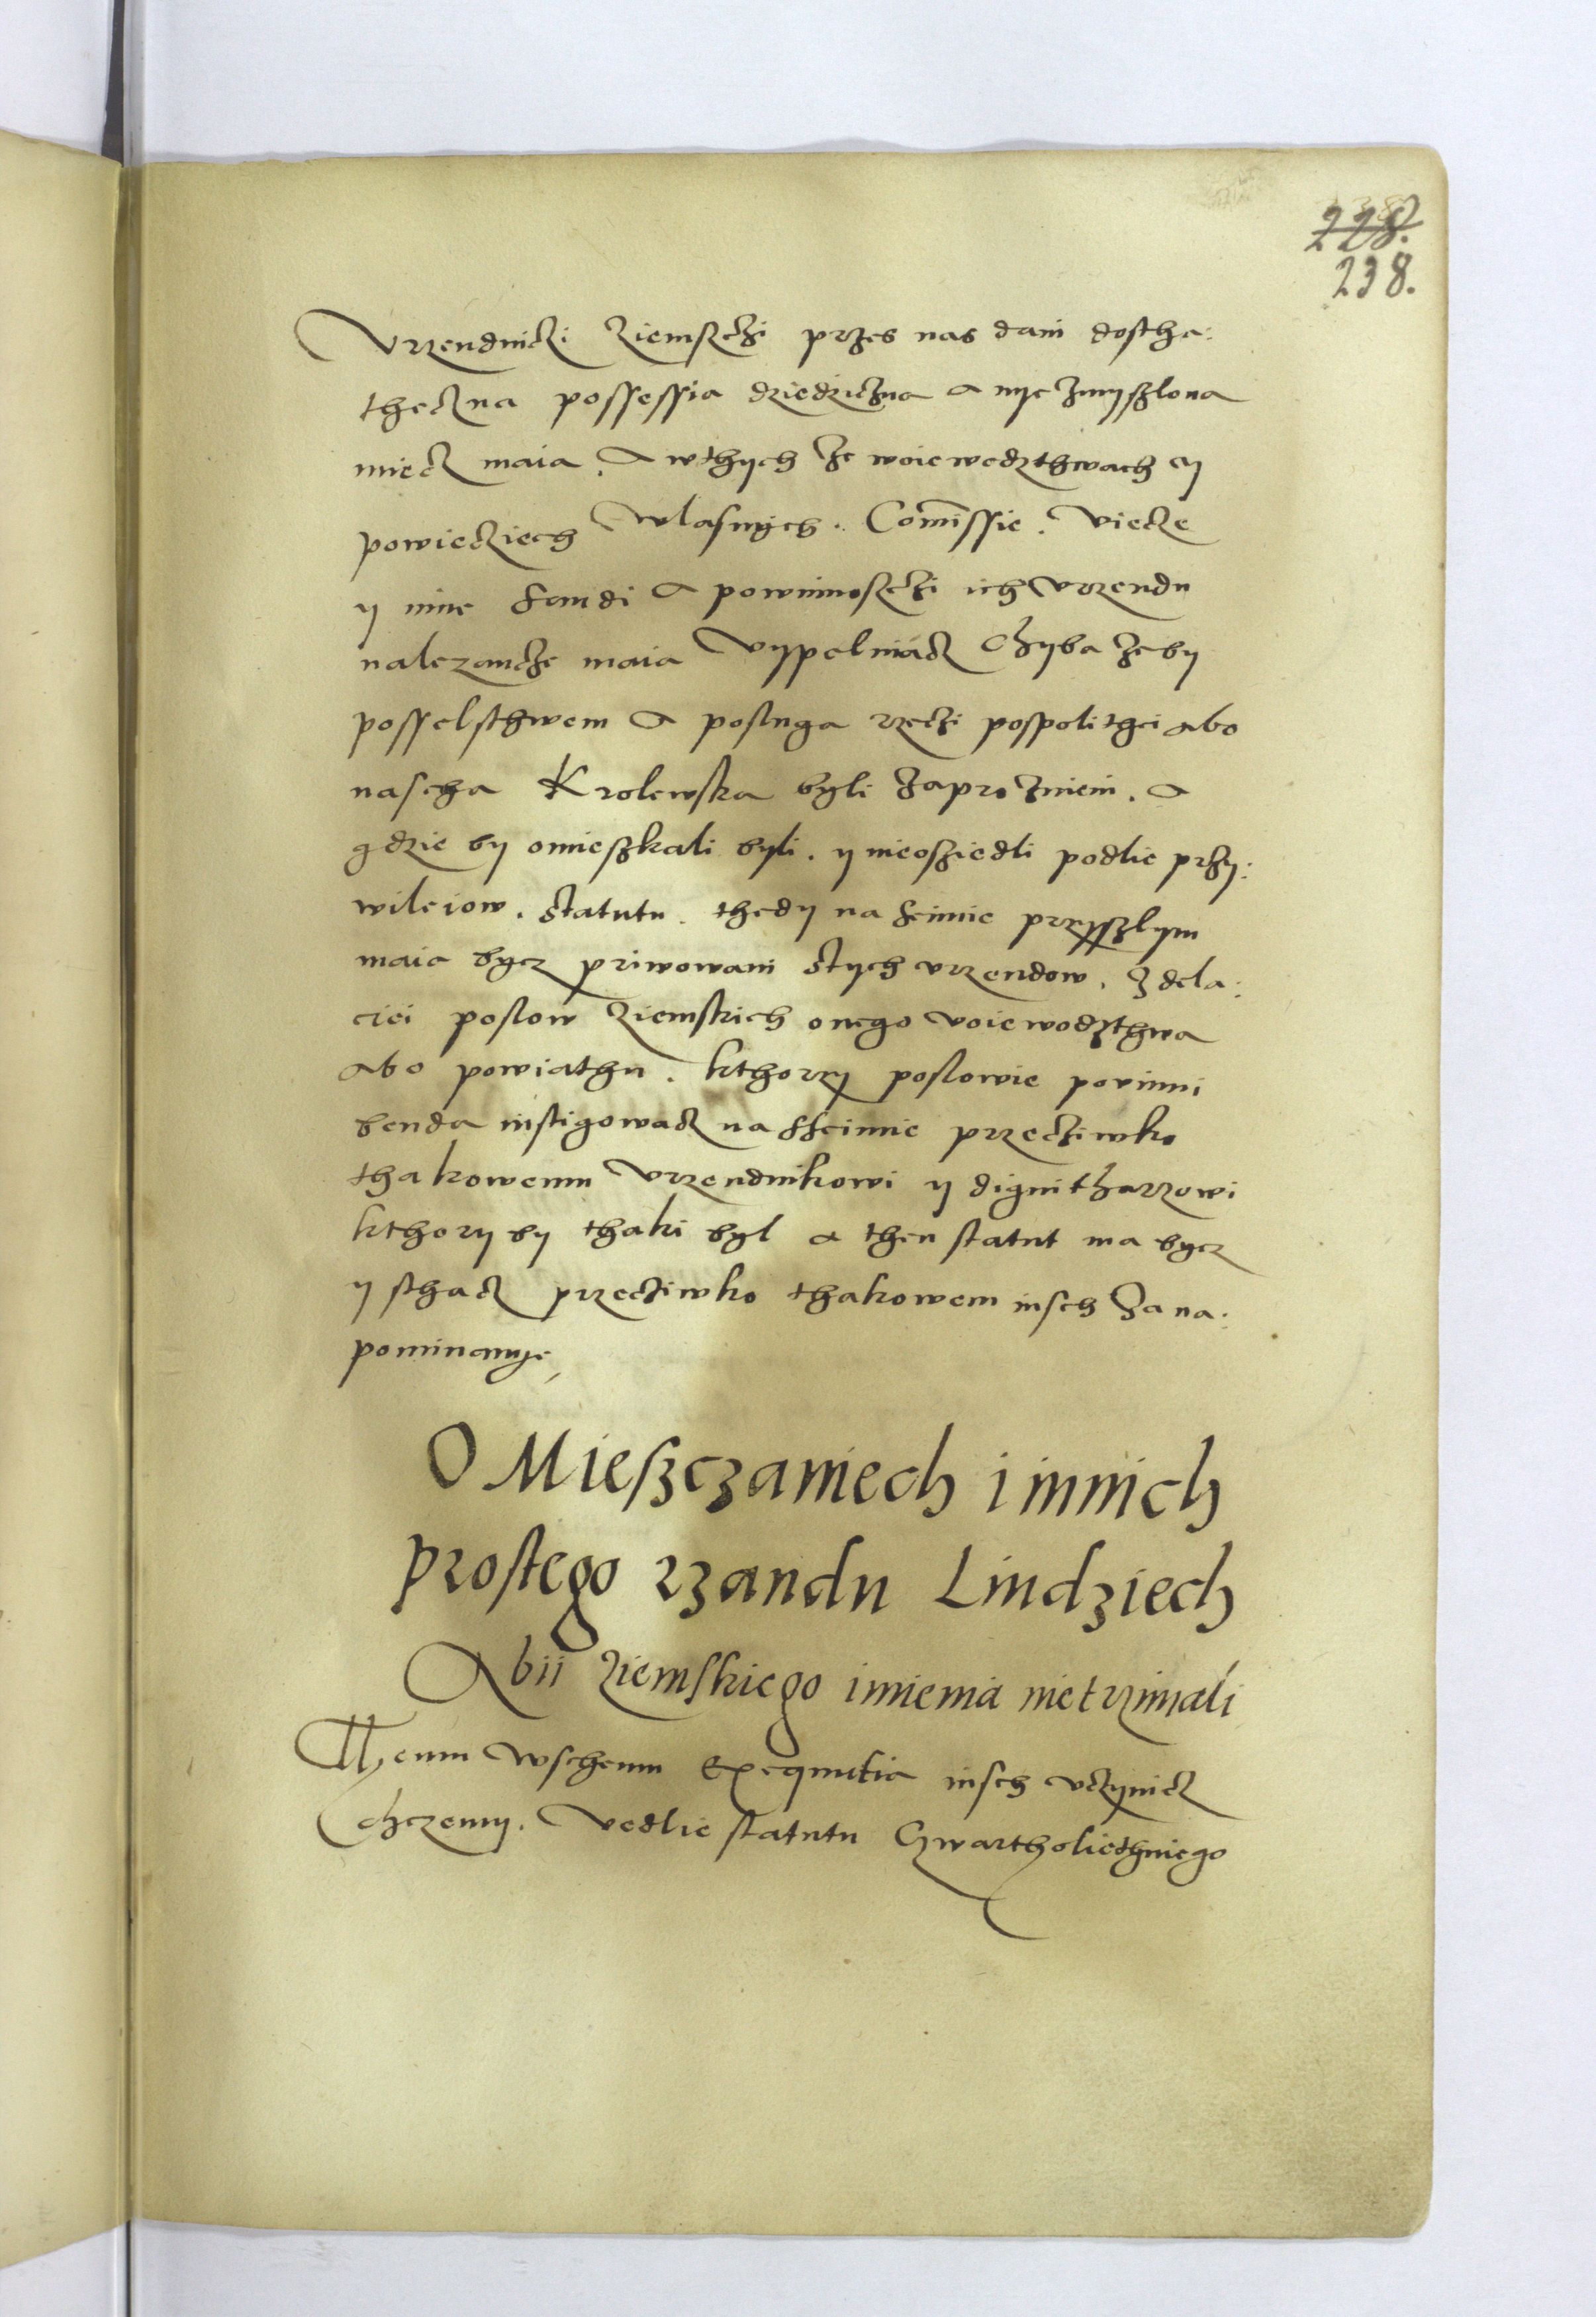 228.
238.
Vrzendniczi ziemsczi przes nas dani dostha:
theczna possessia dziedziczna a nye zmyszlona
miecz maia. A wthych ze woiewodzthwach y
powieciech wlasnych. Comissie. Viecze
y inne sandi a powinnosczi ich vrzendu
nalezancze maia vypelniacz chyba zeby
posselsthwem a posluga rzeczi pospolithei abo
nascha Krolewska byli zaproznieni. a
gdzie by omieszkali byli. y nieosziedli podlie przy:
wileiow. statutu. thedy na seimie przyszlym
maia bycz priwowani stych vrzendow. z dela:
ciei poslow ziemskich onego voiewodzthwa
abo powiathu. kthorzy poslowie povinni
benda instigowacz na sseimie przecziwko
thakowemu vrzendnikowi y dignitharzowi
kthory by thaki byl a then statut ma bycz
y sthacz przecziwko thakowem insch za na:
pominanye,
O Mieszczaniech i innich
prostego rzandu Liudziech
Abii ziemskiego imienia nie trzimali
Themu wschemu Exequutia insch vczynicz
chczemy. Vedlie statutu Czwartholiethniego